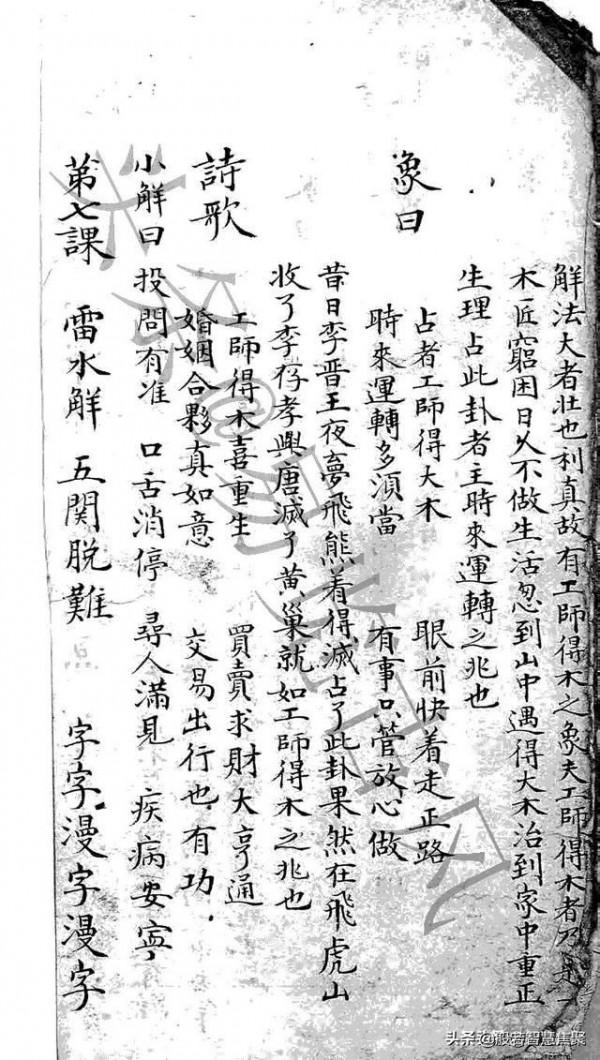 解法大者壯也利真故有工師得木之象夫工師得木者乃是一
木匠窮困日久不做生活忽到山中遇得大木治到家中重正
生理占此卦者主時來運轉之兆也
象曰 占者工師得大木 眼前快着走正路
時來運轉多湏當 有事只管放心做
昔日李晋王夜夢飛熊着得滅占了此卦果然在飛虎山
收了李存孝興唐滅了黄巢就如工師得木之兆也
詩歌 工師得木喜重生 買賣求財大亨通
婚姻合夥真如意 交易出行也有功
小解曰 投問有准 口舌消停 尋人滿見 疾病安寧
第七課 雷水解 五関脱難 字字漫字漫字
头条@易
头条@般若智慧焦聚